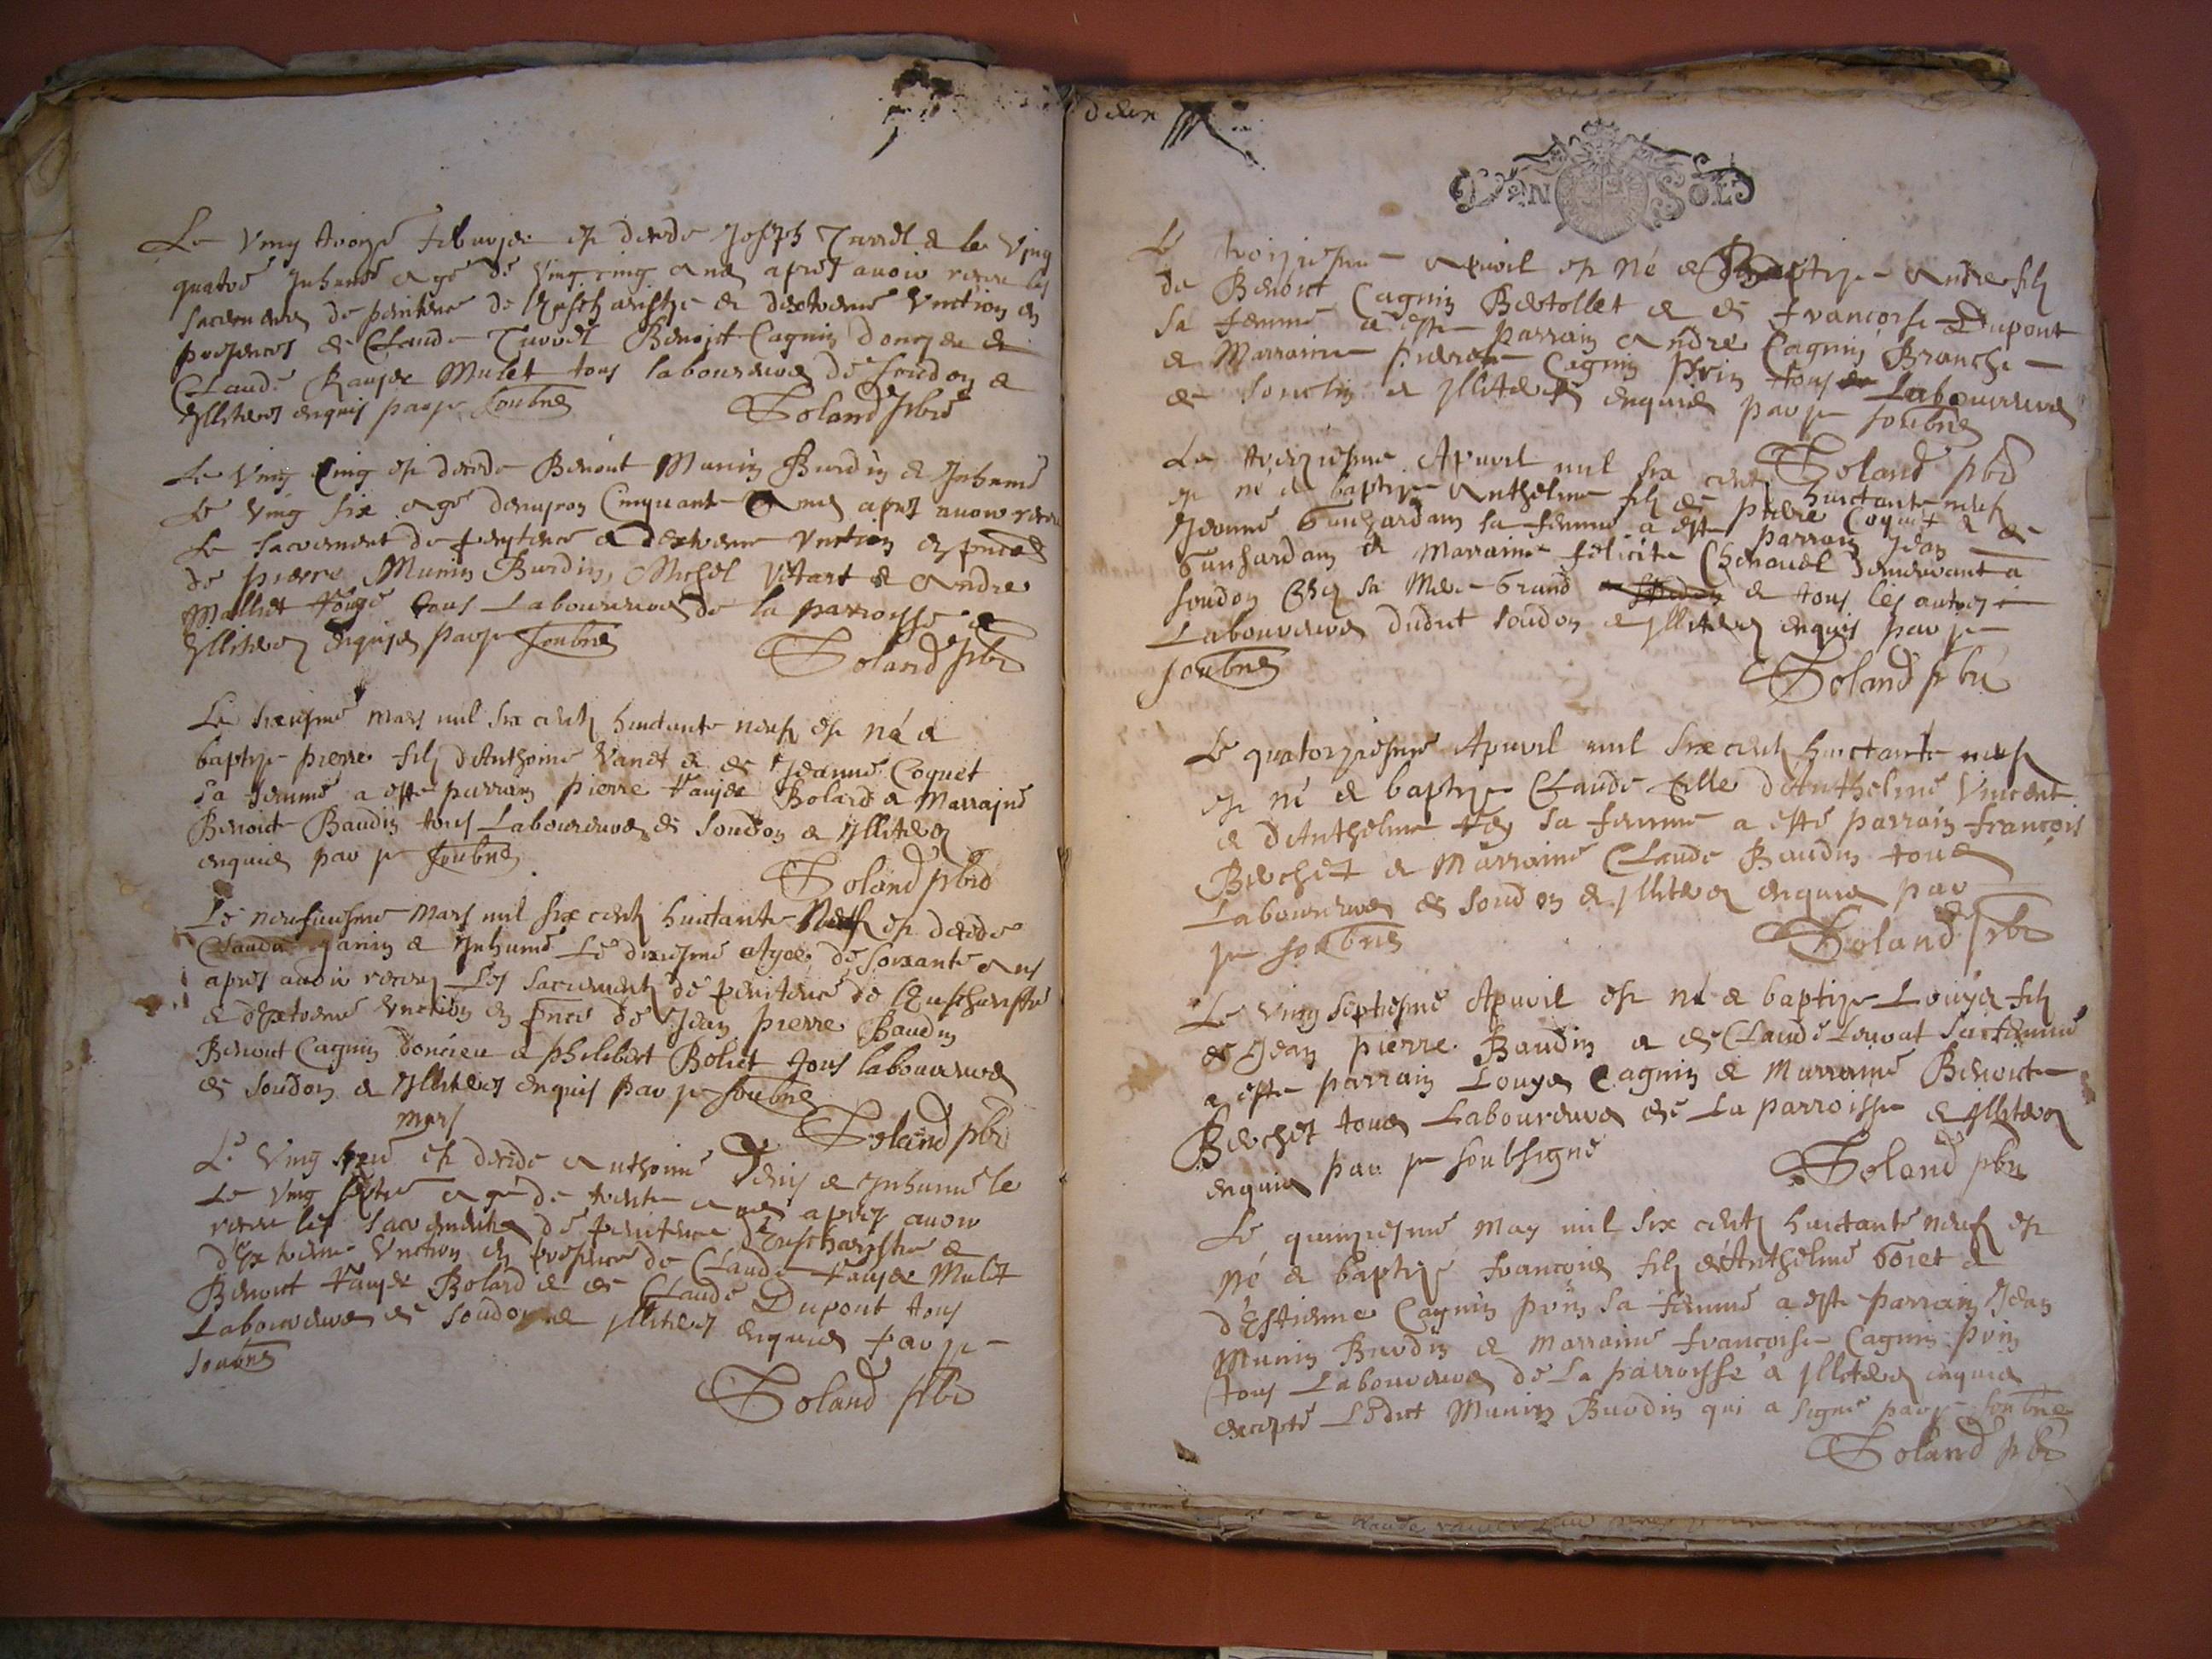 Le Ving troize febvrier est decede Joseph Turrel & le Ving
quatre Inhumé agé de Ving cing ans apres avoir receu les
sacremens de penitence de leucharistie & dextreme Unction en
presences de Claude Turrel Benoist Cagnin doncieu &
Claude Rauier Mulet tous laboureurs de soudon &
Illiteres enquis par je soubne
Soland pbre
Le Ving Cing est decede Benoit Munin Burdin & Inhumé
Le Ving six agé denviron Cinquant ans apres avoir receu
Le sacrement de penitence & dextreme Unction en pnce
de pierre Munin Burdin, Michel Vitart & Andre
Malliet tous Laboureurs de la parroisse &
Illiteres enquis par je soubne
Soland pbre
Le sixiesme mars mil six cents huictante neuf est né &
baptise pierre fils d'Anthoine Vanet & de Jeanne Coquet
sa femme a este parrain pierre Vauier Bolard & Marraine
Benoite Baudin tous Laboureurs de soudon & Illiteres
enquis par je soubne
Soland pbre
Le neufuiesme Mars mil six cents huictante Neuf est decede
Claude Janin & Inhumé Le dixiesme Agee de soixante ans
apres avoir receu Les sacrements de penitence de leucharistie
& dextreme Unction en pnce de Jean pierre Baudin
Benoit Cagnin doncieu & philibert Boliet tous laboureurs
de soudon & Illiteres enquis par je soubne
Soland pbre
mars
Le Ving est decede Anthoine & Inhumé le
Le Ving agé de trente ans apres avoir
receu les sacrements de penitence d'Eucharistie &
dextreme Unction en presence de Claude Vauier Mulet
Benoit Vauier Bolard & de Claude Dupont tous
Laboureurs de soudon & Illiteres enquis par je
soubne
Soland pbre
deux
DEUX SOLS
Le troiziesme Apuril est Né & Baptise Andre fils
de Benoict Cagnin Bertollet & de francoise Dupont
sa femme a este parrain Andre Cagnin Branche
& Marraine pierrette Cagnin prin tous Laboureurs
de soudon & Illiteres enquis par je soubne
Soland pbre
Le treiziesme Apuril mil six cents huictante neuf
est né & baptise Anthelme fils de pierre Coquet & de
Jeanne Gunhardam sa femme a este parrain Jean
Gunhardam & Marraine felicite Chenavel demeurant a
soudon Chez sa Mere Grand & tous les autres
Laboureurs dudict soudon & Illiteres enquis par je
soubne
Soland pbre
Le quatorziesme Apuril mil six cents huictante neuf
est né & baptise Claude fille d'Anthelme Vincent
& d'Anthelme sa femme a esté parrain francois
Berchet & Marraine Claude Baudin tous
Laboureurs de soudon & Illiteres enquis par
je soubne
Soland pbre
Le Ving septiesme Apuril est né & baptise Louys fils
de Jean pierre Baudin & de Claude Louvat sa femme
a este parrain Louys Cagnin & Marraine Benoite
Berchet tous Laboureurs de La parroisse & Illiteres
enquis par je soubsigné
Soland pbre
Le quinziesme May mil six cents huictante neuf est
né & baptise francois fils d'Anthelme Goiet &
d'Estienne Cagnin prin sa femme a este parrain Jean
Munin Burdin & Marraine francoise Cagnin prin
tous Laboureurs de La parroisse & Illiteres enquis
excepté Ledict Munin Burdin qui a signé par je soubne
Soland pbre